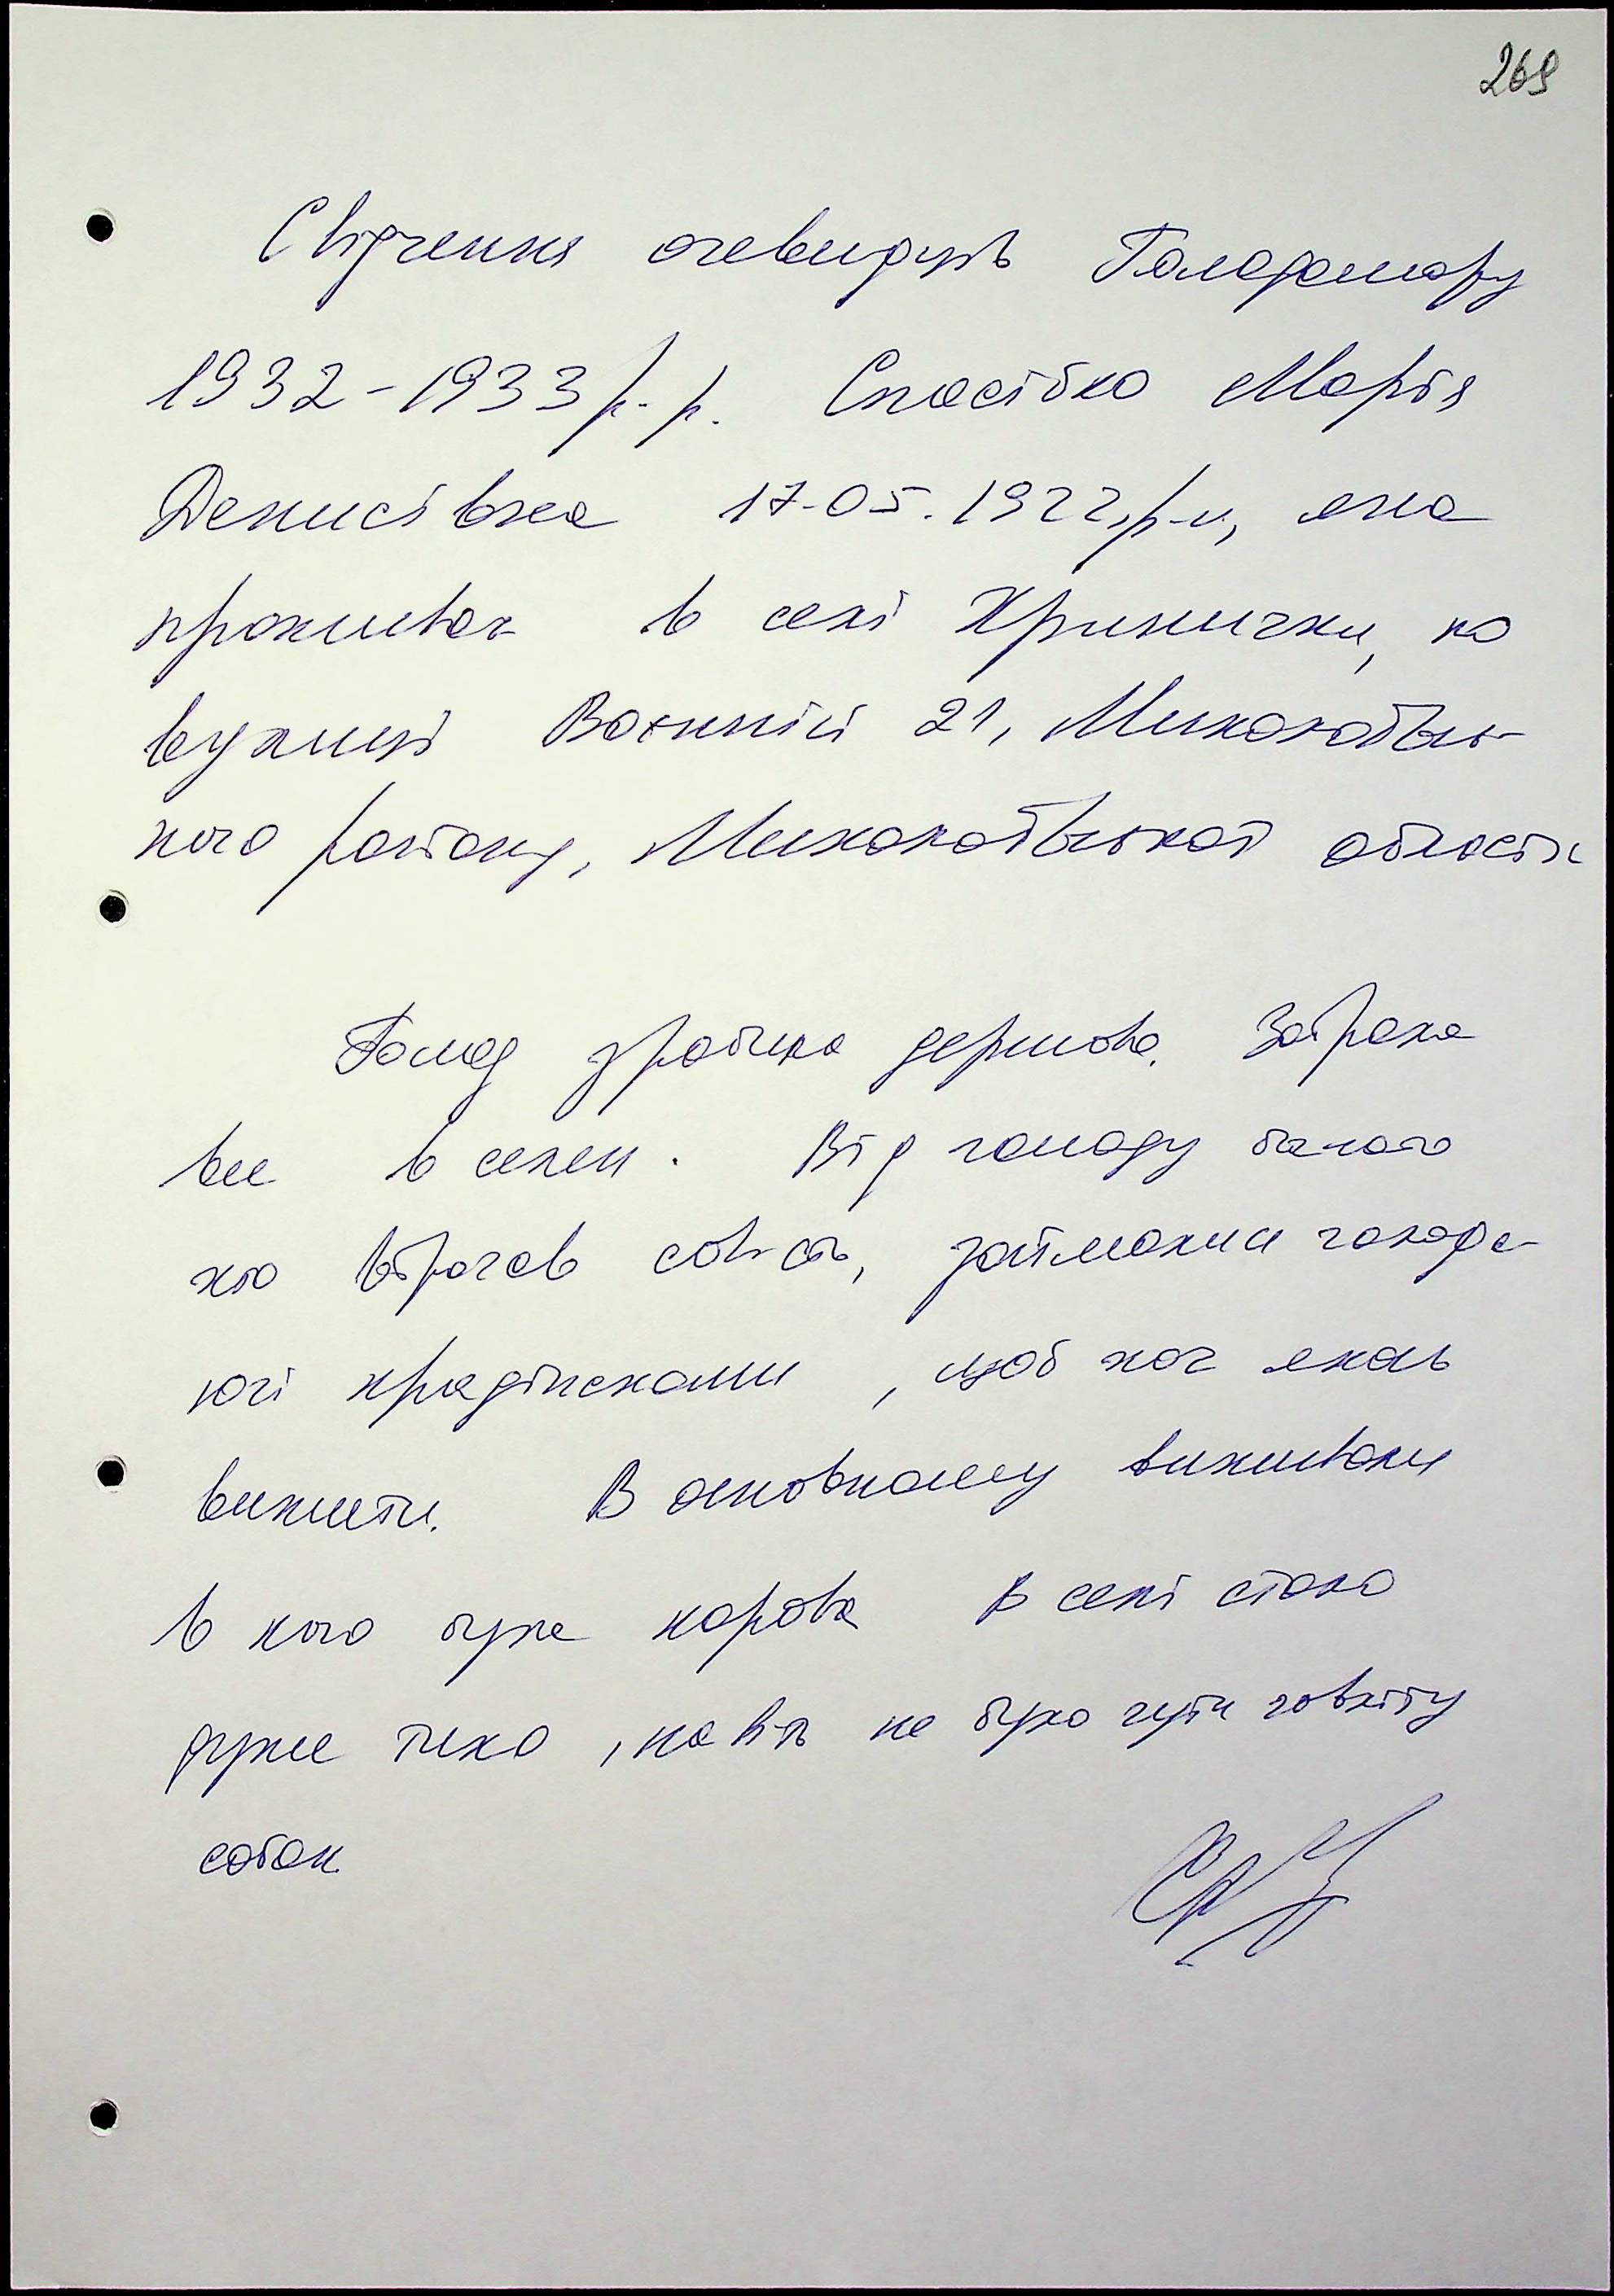 269
Свідчення очевидця Голодомору
1932-1933 р.р. Спасібко Марія
Денисівна 17.05.1922 р.н., яка
проживає в селі Кринички, по
вулиці 21, Миколаївсь-
кого району, Миколаївської області
Голод зробила держава. Забрала
все в селян. Від голоду багато
хто втрачав совість, займалися
крадіжками, щоб хоч якось
вижити. В основному виживали
в кого була корова В селі стало
дуже тихо, навіть не було чути
собак